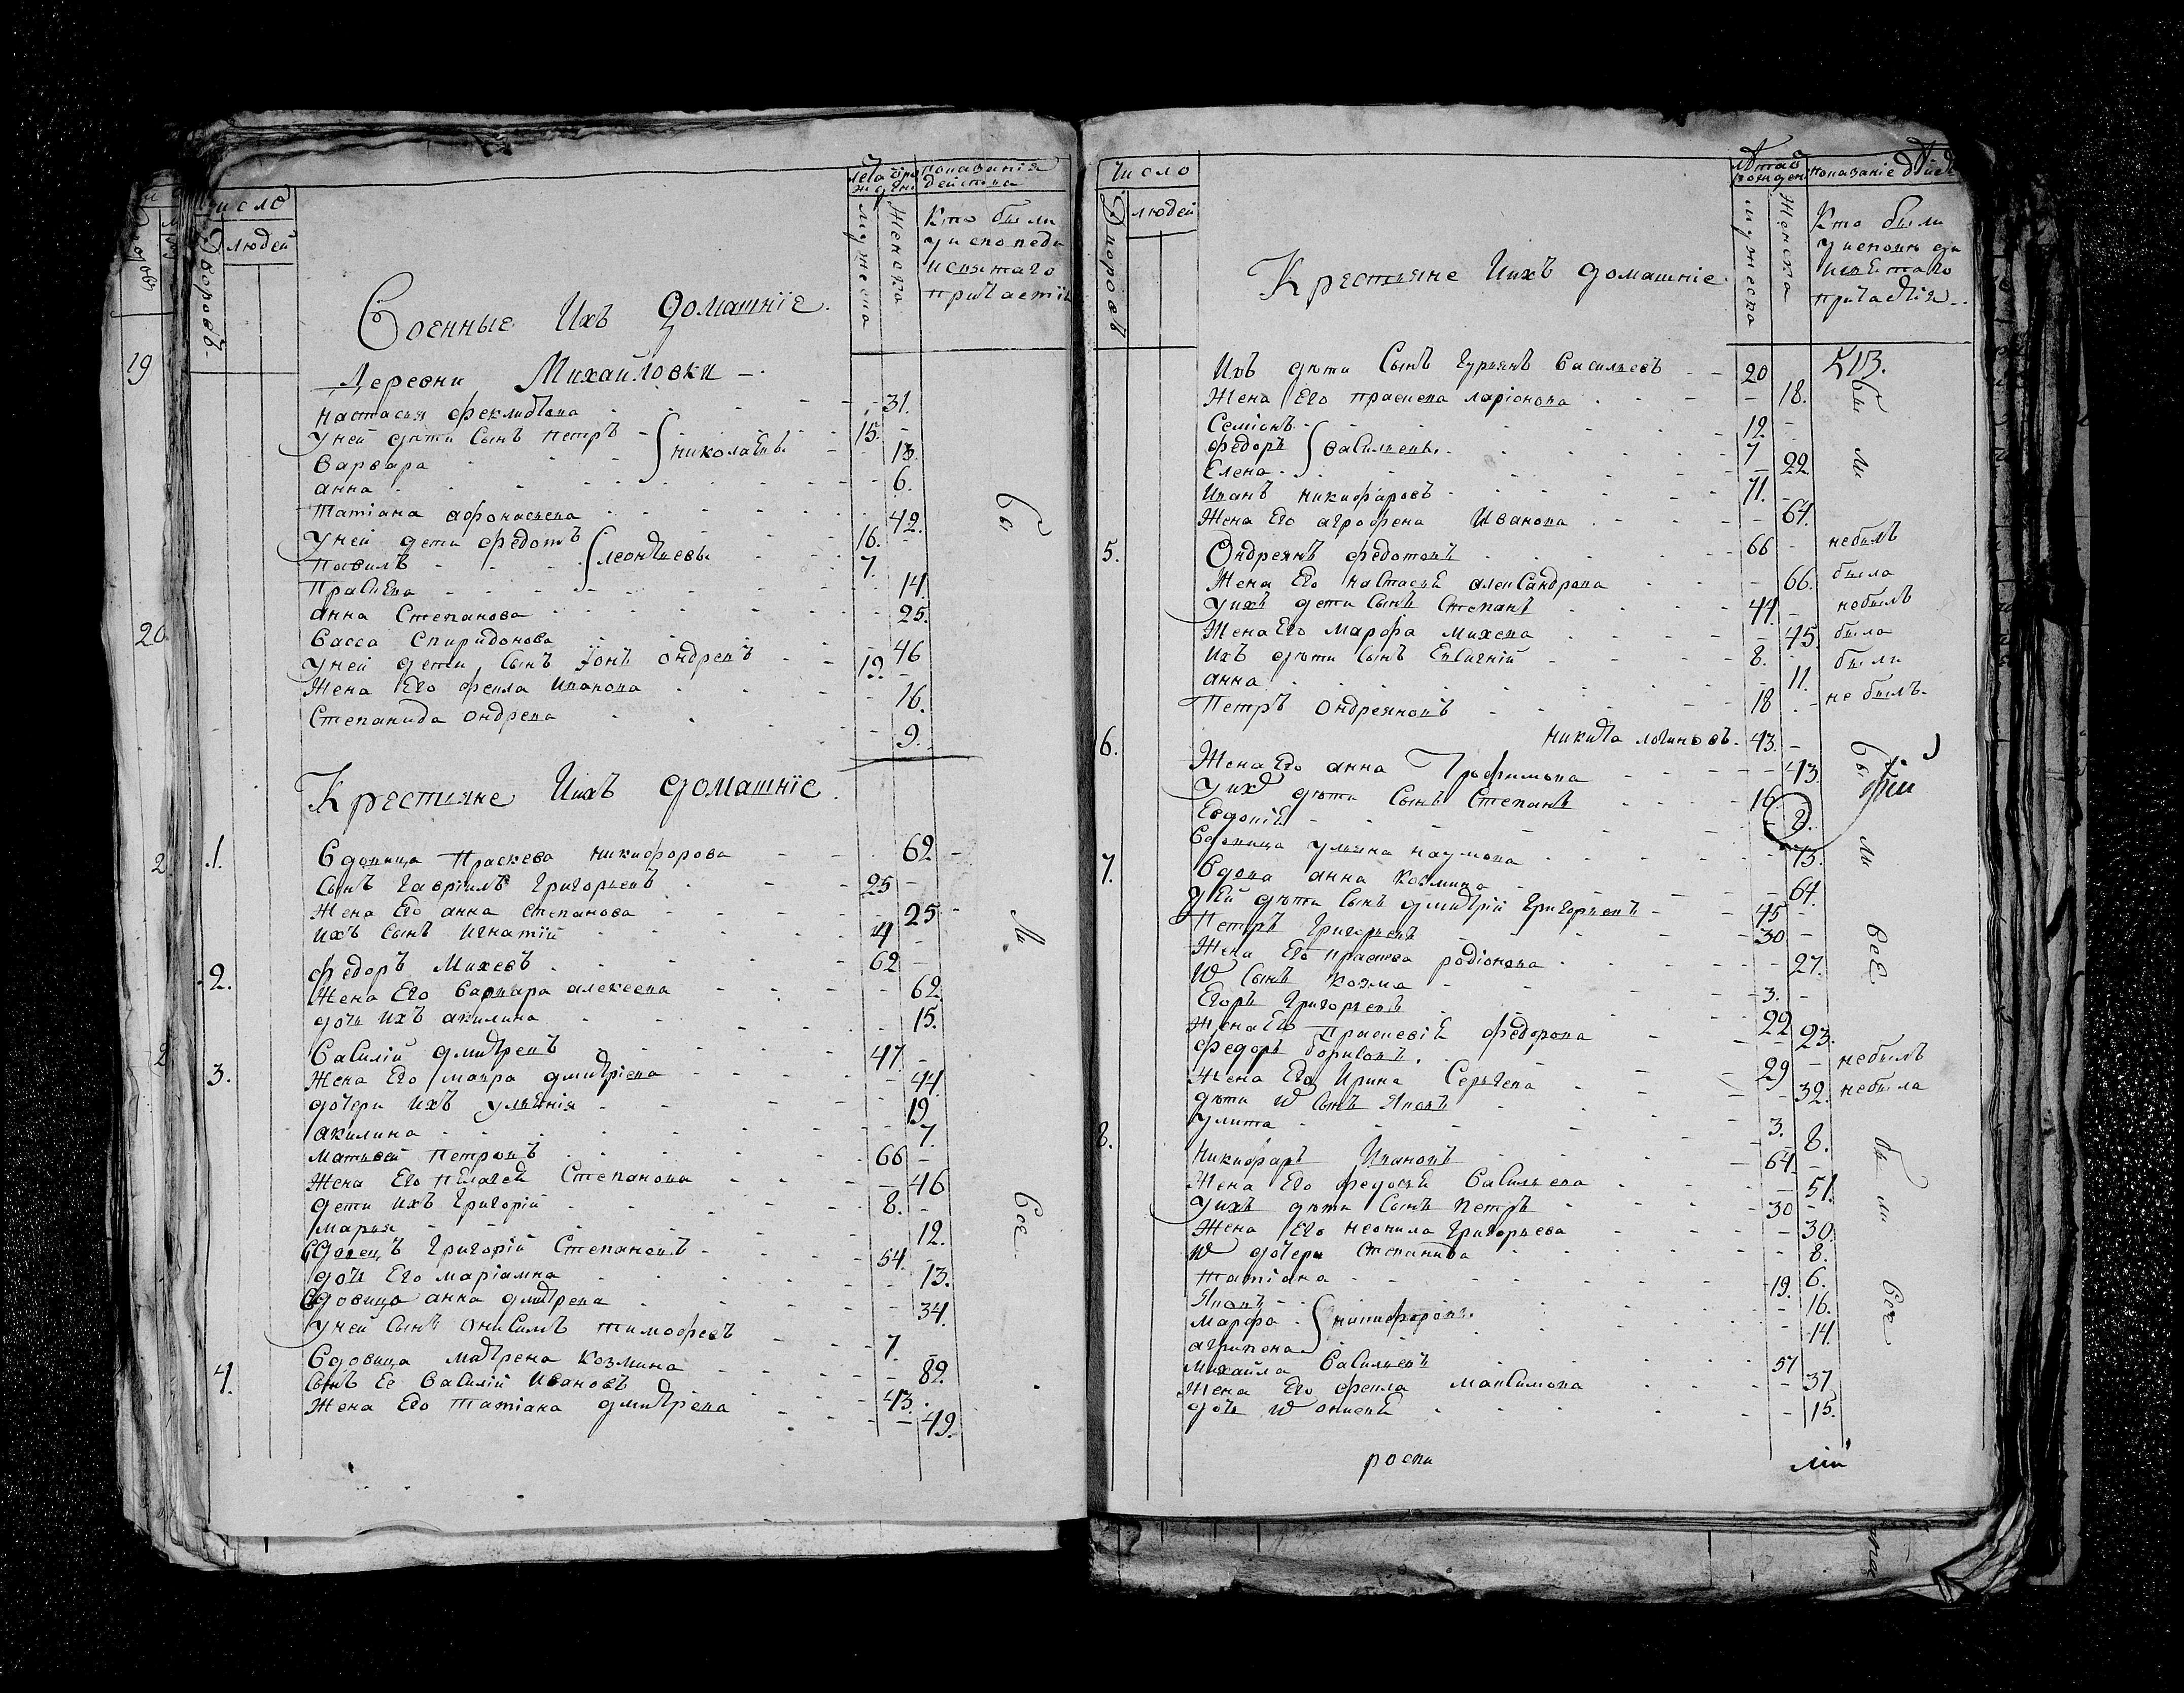 Число
Дворовъ
людей
Лета отро
жденiя
мужеска
Женска
показания
действа
Кто были
у исповеди
и святаго
причастiя
Военные Ихъ Домашнiе.
Деревни Михайловки
Настасья феклистова 31.
У ней дети Сынъ петръ 15. николаевы
Варвара 13.
анна 6.
Татiана афонасьева 42.
У ней дети федотъ 16. леонтьевы
Павилъ 7.
Праскева 14.
анна Степанова 25.
Васса Спиридонова 46
У ней дети Сынъ Iонъ ондреевъ 19.
Жена Его фекла иванова 16.
Степанида ондрева 9.
Крестьяне Ихъ домашнiе.
1. Вдовица Праскева никифорова 62
Сынъ гаврiилъ григорьевъ 25
Жена Его анна степанова 25
ихъ Сынъ игнатiй 4
2. федоръ Михевъ 62
Жена Его Варвара алексеева 62
дочь ихъ акилина 15.
3. Василiй дмитревъ 47
Жена Его мавра дмитрiева 44
дочери ихъ ульянiя 19
акилина 7.
матвей Петровъ 66
Жена Его пелагея Степанова 46
дети ихъ григорiй 8.
марья 12.
Вдовецъ григорiй Степановъ 54.
дочь Его марiамна 13.
Вдовица анна дмитрева 34.
У ней Сынъ онисимъ тимофеевъ 7.
4. Вдовица матрена козмина 82.
Сынъ Ее Василiй ивановъ 43.
Жена Его татiана дмитрева 49.
бы
ли
все
Число
Дворовъ
людей
Крестьяне Ихъ домашнiе.
мужеска
Женска
показанiе
Кто были
причастiя
513.
Ихъ дѣти Сынъ гурьянъ Васильевъ 20
Жена Его праскева ларiонова 18.
Семiонъ 12.
федоръ Васильевы 7
Елена 22
Иванъ никифаровъ 71.
Жена Его аграфена Иванова 64.
5. Ондреянъ федотовъ 66 небылъ
Жена Его настасья александрова 66. была
У ихъ дети Сынъ Степанъ 44. небылъ
Жена Его марфа михева 45. была
Ихъ дѣти Сынъ Евсигнiй 8. были
анна 11.
Петръ Ондреяновъ 18 не былъ.
6. никита логиновъ 43.
Жена Его анна Трофимова 43.
У ихъ дѣти Сынъ Степанъ 16.
Евдокiя
Вдовица ульяна наумова 73.
7. Вдова анна козмина 64.
У ей дѣти Сынъ дмитрiй григорьевъ 45
Петръ григорьевъ 30
Жена Его праскева родiонова 27.
Сынъ козма 3.
Егоръ григорьевъ 22
Жена Его Прасковiя федорова 23.
федоръ борисовъ 29 небылъ
Жена Его Ирина Сергева 32. небыла
дѣти Сынъ Яковъ 3.
улита 8.
8. Никифаръ Ивановъ 64
Жена Его федосья Васильева 51.
У ихъ дѣти Сынъ петръ 30
Жена Его неонила григорьева 30.
дочери степанида 8.
татiана 6.
Яковъ 19.
марфа никифоровы 16.
агрипена 14.
михайла Васильевъ 57
Жена Его фекла максимова 37
дочь 15.
бы
ли
бы
ли
все
бы
ли
все
роспи